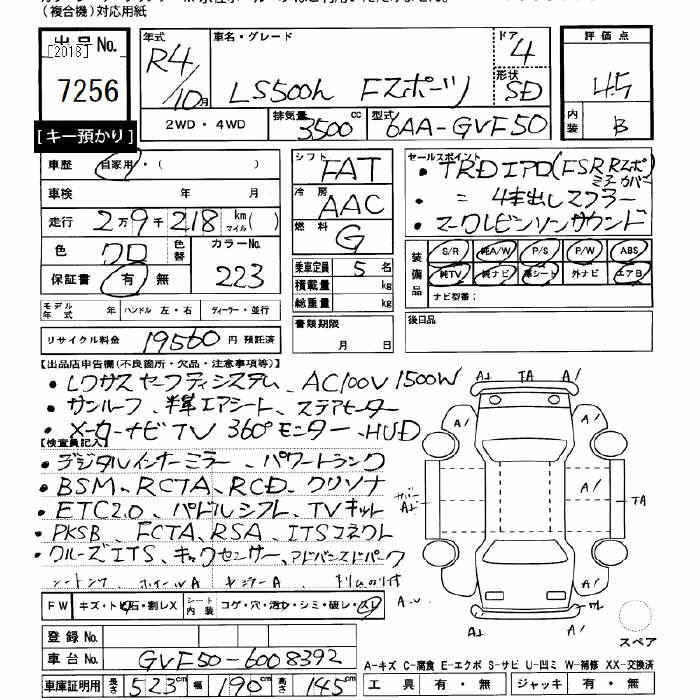 （複合機）対応用紙
出品No.
[2018]
7256
[キー預かり]
年式
R4/10月
車名・グレード
LS500h Fスポーツ
ドア
4
形状
SD
評価点
4.5
内装
B
2WD・4WD
排気量
3500cc
型式
6AA-GVF50
車歴 自家用・( )
車検 年 月
走行 2万9千218 km マイル( )
色 クロ 色替 カラーNo. 223
保証書 有・無
モデル年式 年 ハンドル 左・右 ディーラー・並行
リサイクル料金 19560円 預託済
シフト FAT
冷房 AAC
燃料 G
乗車定員 5名
積載量 kg
総重量 kg
書類期限
月 日
セールスポイント
・TRDエアロ(FSRRスポ
ミラーカバー
・〃 4本出しマフラー
・マークレビンソンサウンド
装備品
S/R 純A/W P/S P/W ABS
純TV 純ナビ 革シート 外ナビ エアB
ナビ型番：
後日品
【出品店申告欄(不良箇所・欠品・注意事項等)】
・レクサスセーフティシステム、AC100V1500W
・サンルーフ、半革エアシート、ステアヒーター
・メーカーナビTV 360°モニター、HUD
【検査員記入】
・デジタルインナーミラー、パワートランク
・BSM、RCTA、RCD、クリソナ
・ETC2.0、パドルシフト、TVキット
・PKSB、FCTA、RSA、ITSコネクト
・クルーズITS、キックセンサー、アドバンスドパーク
FW キズ・トビ石・割レX シート内装 コゲ・穴・汚レ・シミ・破レ・スレ
登録No.
車台No. GVF50-6008392
車庫証明用 長さ 523cm 幅 190cm 高さ 145cm
A TA A
A/ A/
A/
TA
A/
A/ A/
スペア
A-キズ C-腐食 E-エクボ S-サビ U-凹ミ W-補修 XX-交換済
工具 有・無 ジャッキ 有・無